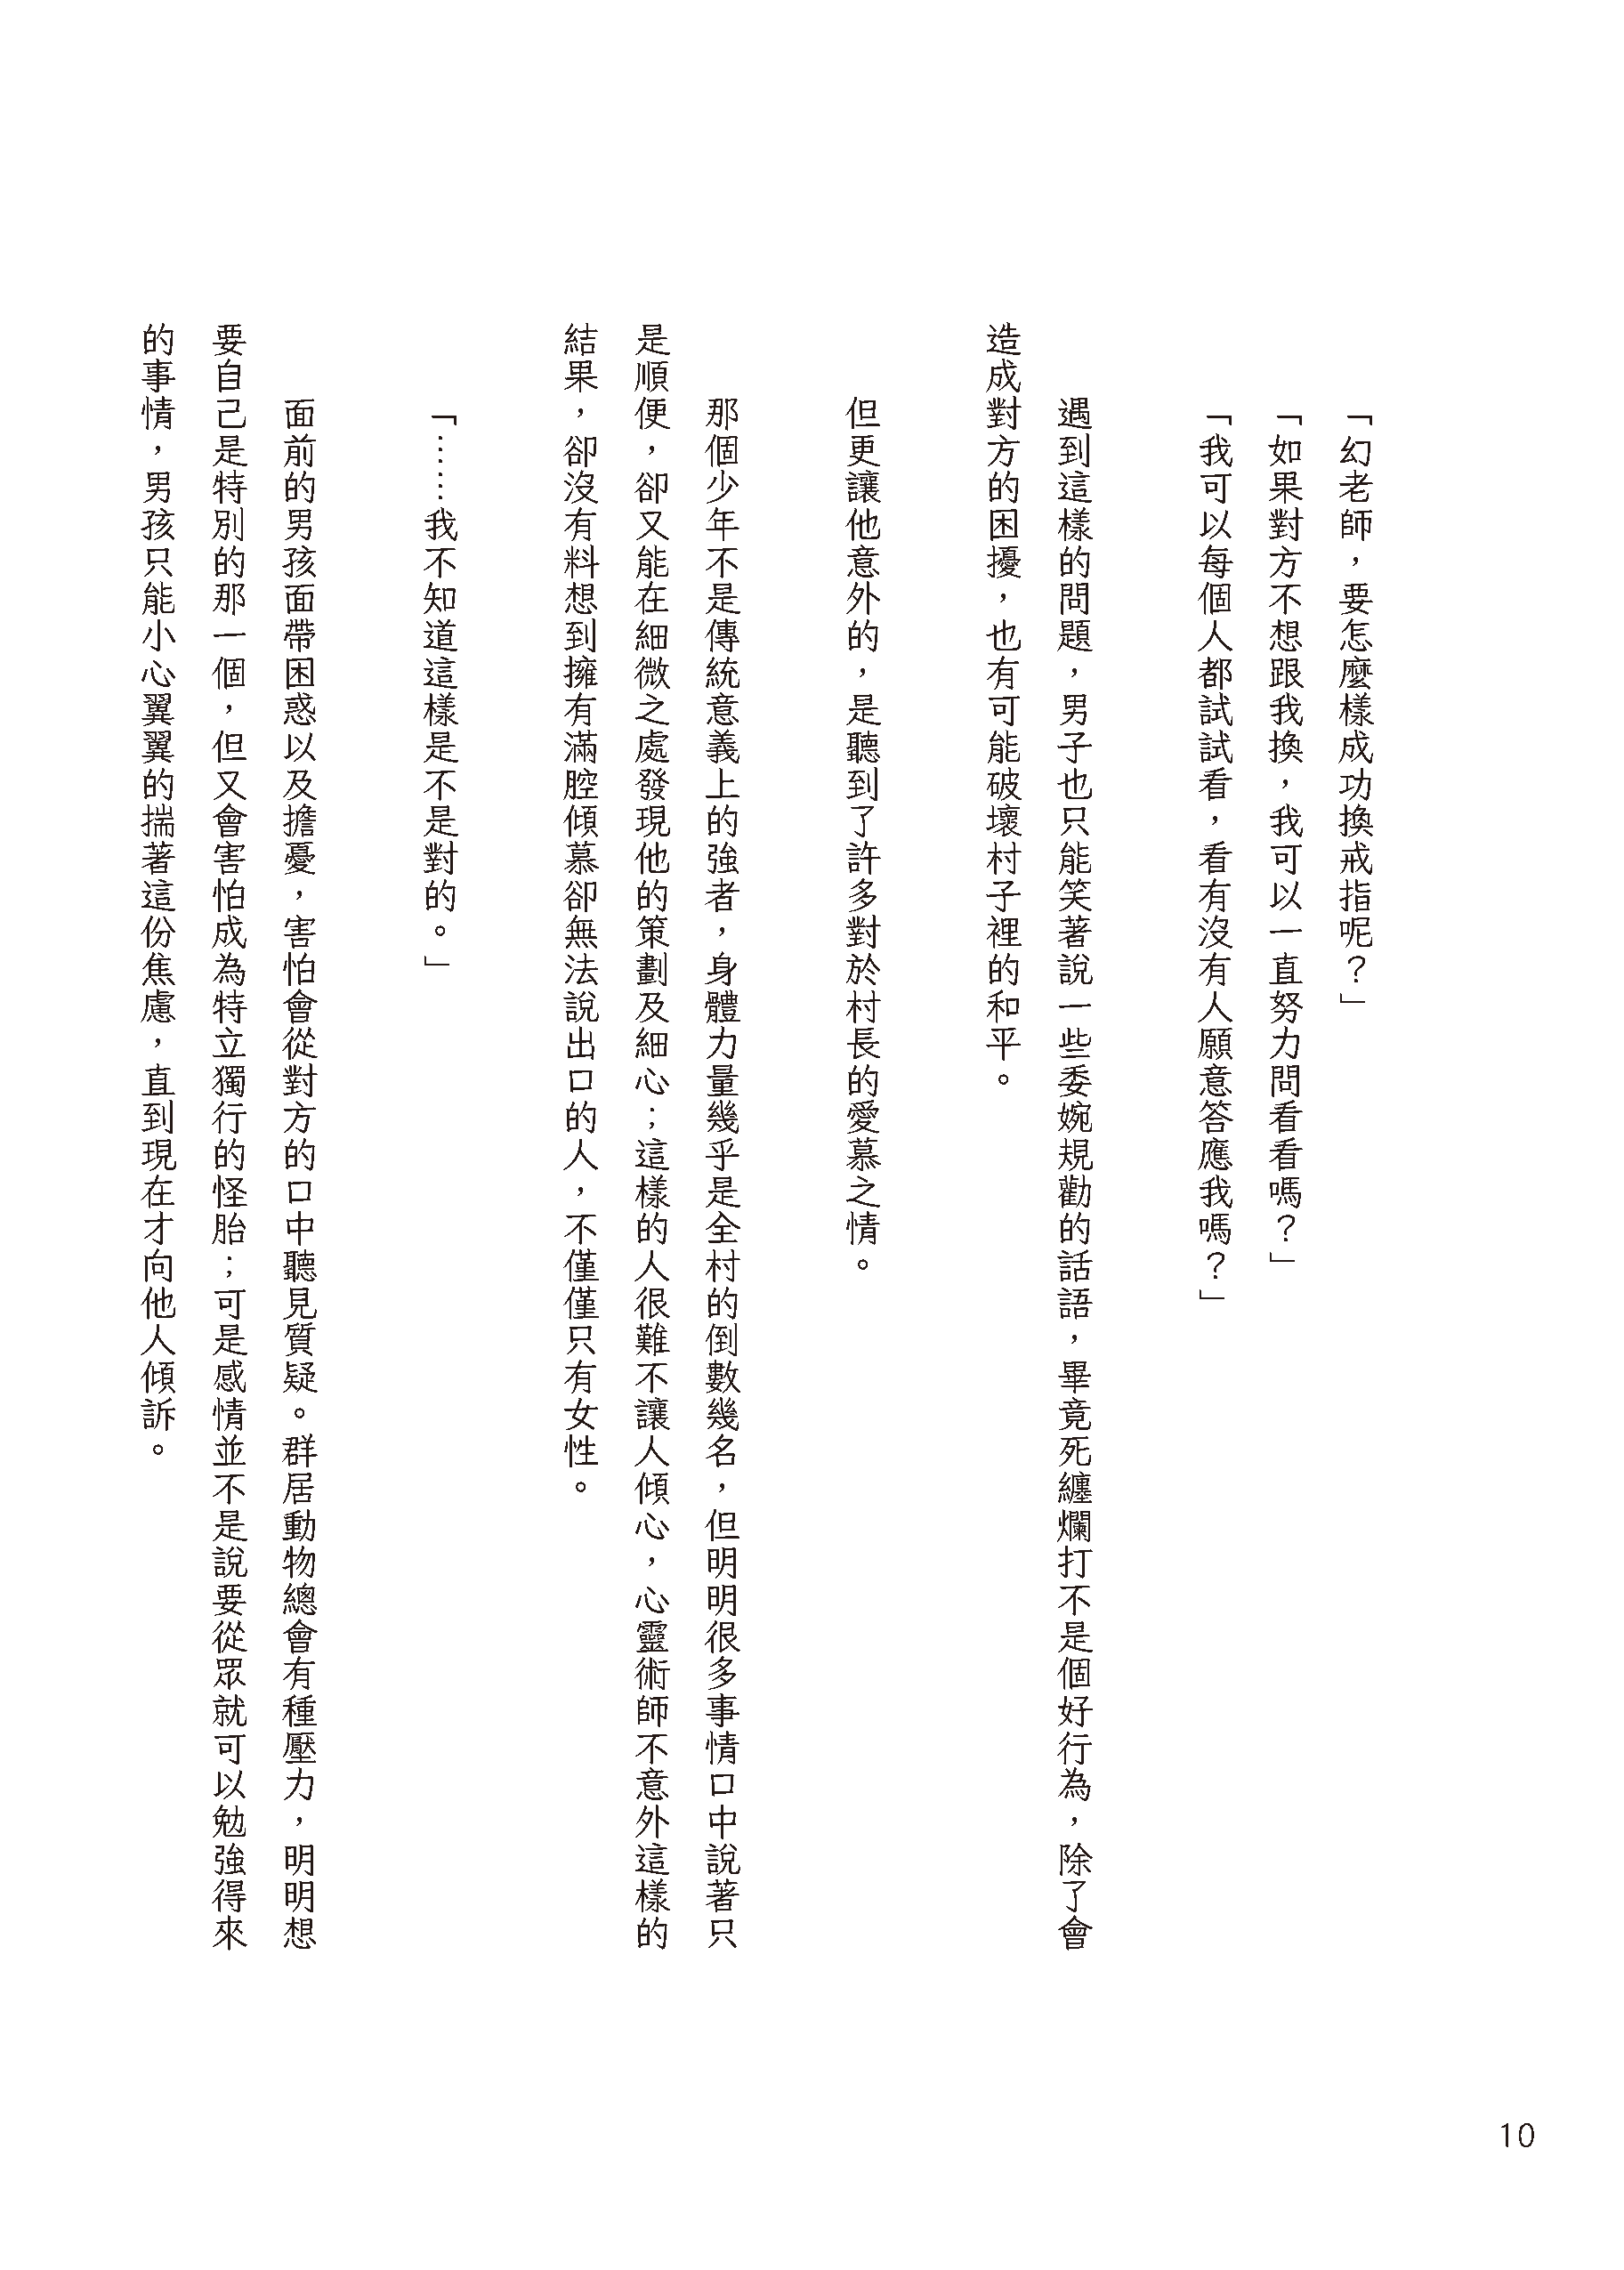 「幻老師，要怎麼樣成功換戒指呢？」
「如果對方不想跟我換，我可以一直努力問看看嗎？」
「我可以每個人都試試看，看有沒有人願意答應我嗎？」
遇到這樣的問題，男子也只能笑著說一些委婉規勸的話語，畢竟死纏爛打不是個好行為，除了會
造成對方的困擾，也有可能破壞村子裡的和平。
但更讓他意外的，是聽到了許多對於村長的愛慕之情。
那個少年不是傳統意義上的強者，身體力量幾乎是全村的倒數幾名，但明明很多事情口中說著只
是順便，卻又能在細微之處發現他的策劃及細心；這樣的人很難不讓人傾心，心靈術師不意外這樣的
結果，卻沒有料想到擁有滿腔傾慕卻無法說出口的人，不僅僅只有女性。
「……我不知道這樣是不是對的。」
面前的男孩面帶困惑以及擔憂，害怕會從對方的口中聽見質疑。群居動物總會有種壓力，明明想
要自己是特別的那一個，但又會害怕成為特立獨行的怪胎；可是感情並不是說要從眾就可以勉強得來
的事情，男孩只能小心翼翼的揣著這份焦慮，直到現在才向他人傾訴。
10